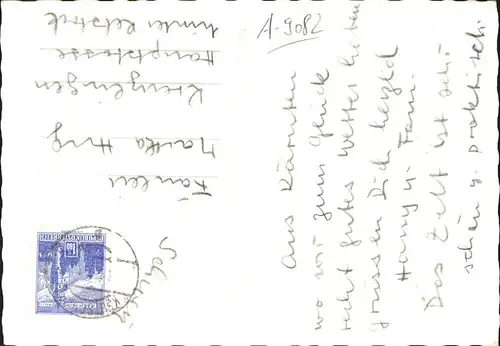 A-9082
Aus Kärnten
wo wir zum Glück
recht gutes Wetter haben
grüssen Dich herzlich
Hany u. Fam.
Das Zelt ist sehr
schön u. praktisch.
Martha Hug
Kreuzlingen
Hauptstrasse
Schweiz